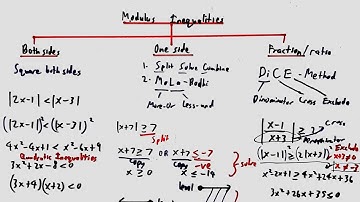 Modulus Inequalities
Both sides
Square both sides
|2x-1| < |x-3|
(|2x-1|)² < (|x-3|)²
4x²-4x+1 < x²-6x+9
Quadratic Inequalities
3x²+2x-8<0
(3x+4)(x+2)<0
One side
1. Split Solve Combine
2. MoLa-
More-Or Less-and
|x+7| ≥ 7
Split
x+7 ≥ 7 OR x+7 ≤ -7
Copy Copy -ve
x ≥ 0 x ≤ -14
solve
level
Fraction/ratio
DiCE-Method
Denominator Cross Exclude
|x-1|
|x+3|
Cross
Denominator
(|x-1|)² ≥ (2|x+3|)²
Exclude
x+3≠0
x ≠ -3
x²-2x+1 ≥ 4x²+24x+36
3x²+26x+35≤0